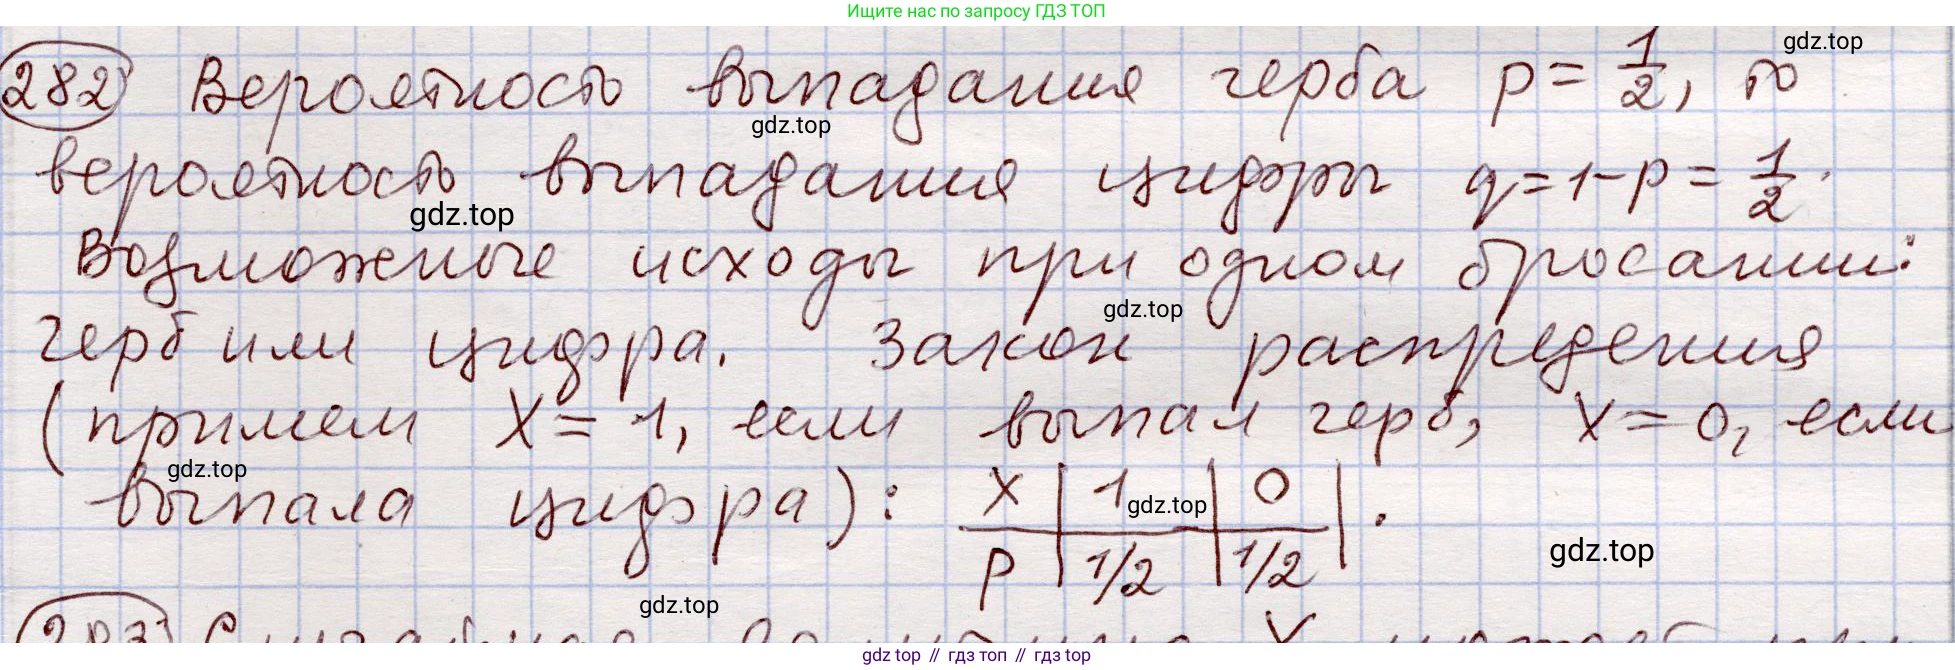 Ищите нас по запросу ГДЗ ТОП
282 Вероятность выпадания герба p = 1/2, то
вероятность выпадания цифры q = 1 - p = 1/2.
Возможные исходы при одном бросании:
герб или цифра. Закон распределения
(примем X = 1, если выпал герб, X = 0, если
выпала цифра): X | 1 | 0 |.
P | 1/2 | 1/2 |
gdz.top
gdz.top
gdz.top
gdz.top
gdz.top
gdz.top
gdz.top
gdz.top
283 Случайная величина X может
gdz top // гдз топ // гдз top